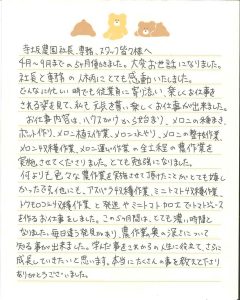 寺坂農園社長、専務、スタッフ皆々様へ
4月〜9月までの5ヶ月間でしたが、大変お世話になりました。
社長と専務の人柄にとても感動いたしました。
どんなに忙しい時でも従業員に寄り添い、楽しくお仕事を
される姿を見て、私も元気を貰い、楽しくお仕事が出来ました。
お仕事内容は、ハウスかけから始まり、メロンの種まき、
ポット作り、メロン植え作業、メロン水やり、メロンの整枝作業、
メロン収穫作業、メロン運び作業の全工程の農作業を
実施させてくださりました。とても勉強になりました。
何よりも色々な農作業を実施させて頂けたことがとても嬉し
かったです。他にも、アスパラ収穫作業、ミニトマト収穫作業、
トウモロコシ収穫作業と発送やミニトマト加工でトマトジュース
を作るお仕事をしました。この5ヶ月間は、とても濃い時間と
なりました。毎日違う発見があり、農作業の深さについて
知る事が出来ました。学んだ事をこれからの人生に役立て、さらに
成長していきたいと思います。本当にたくさんの事を教えて下さり
ありがとうございました。